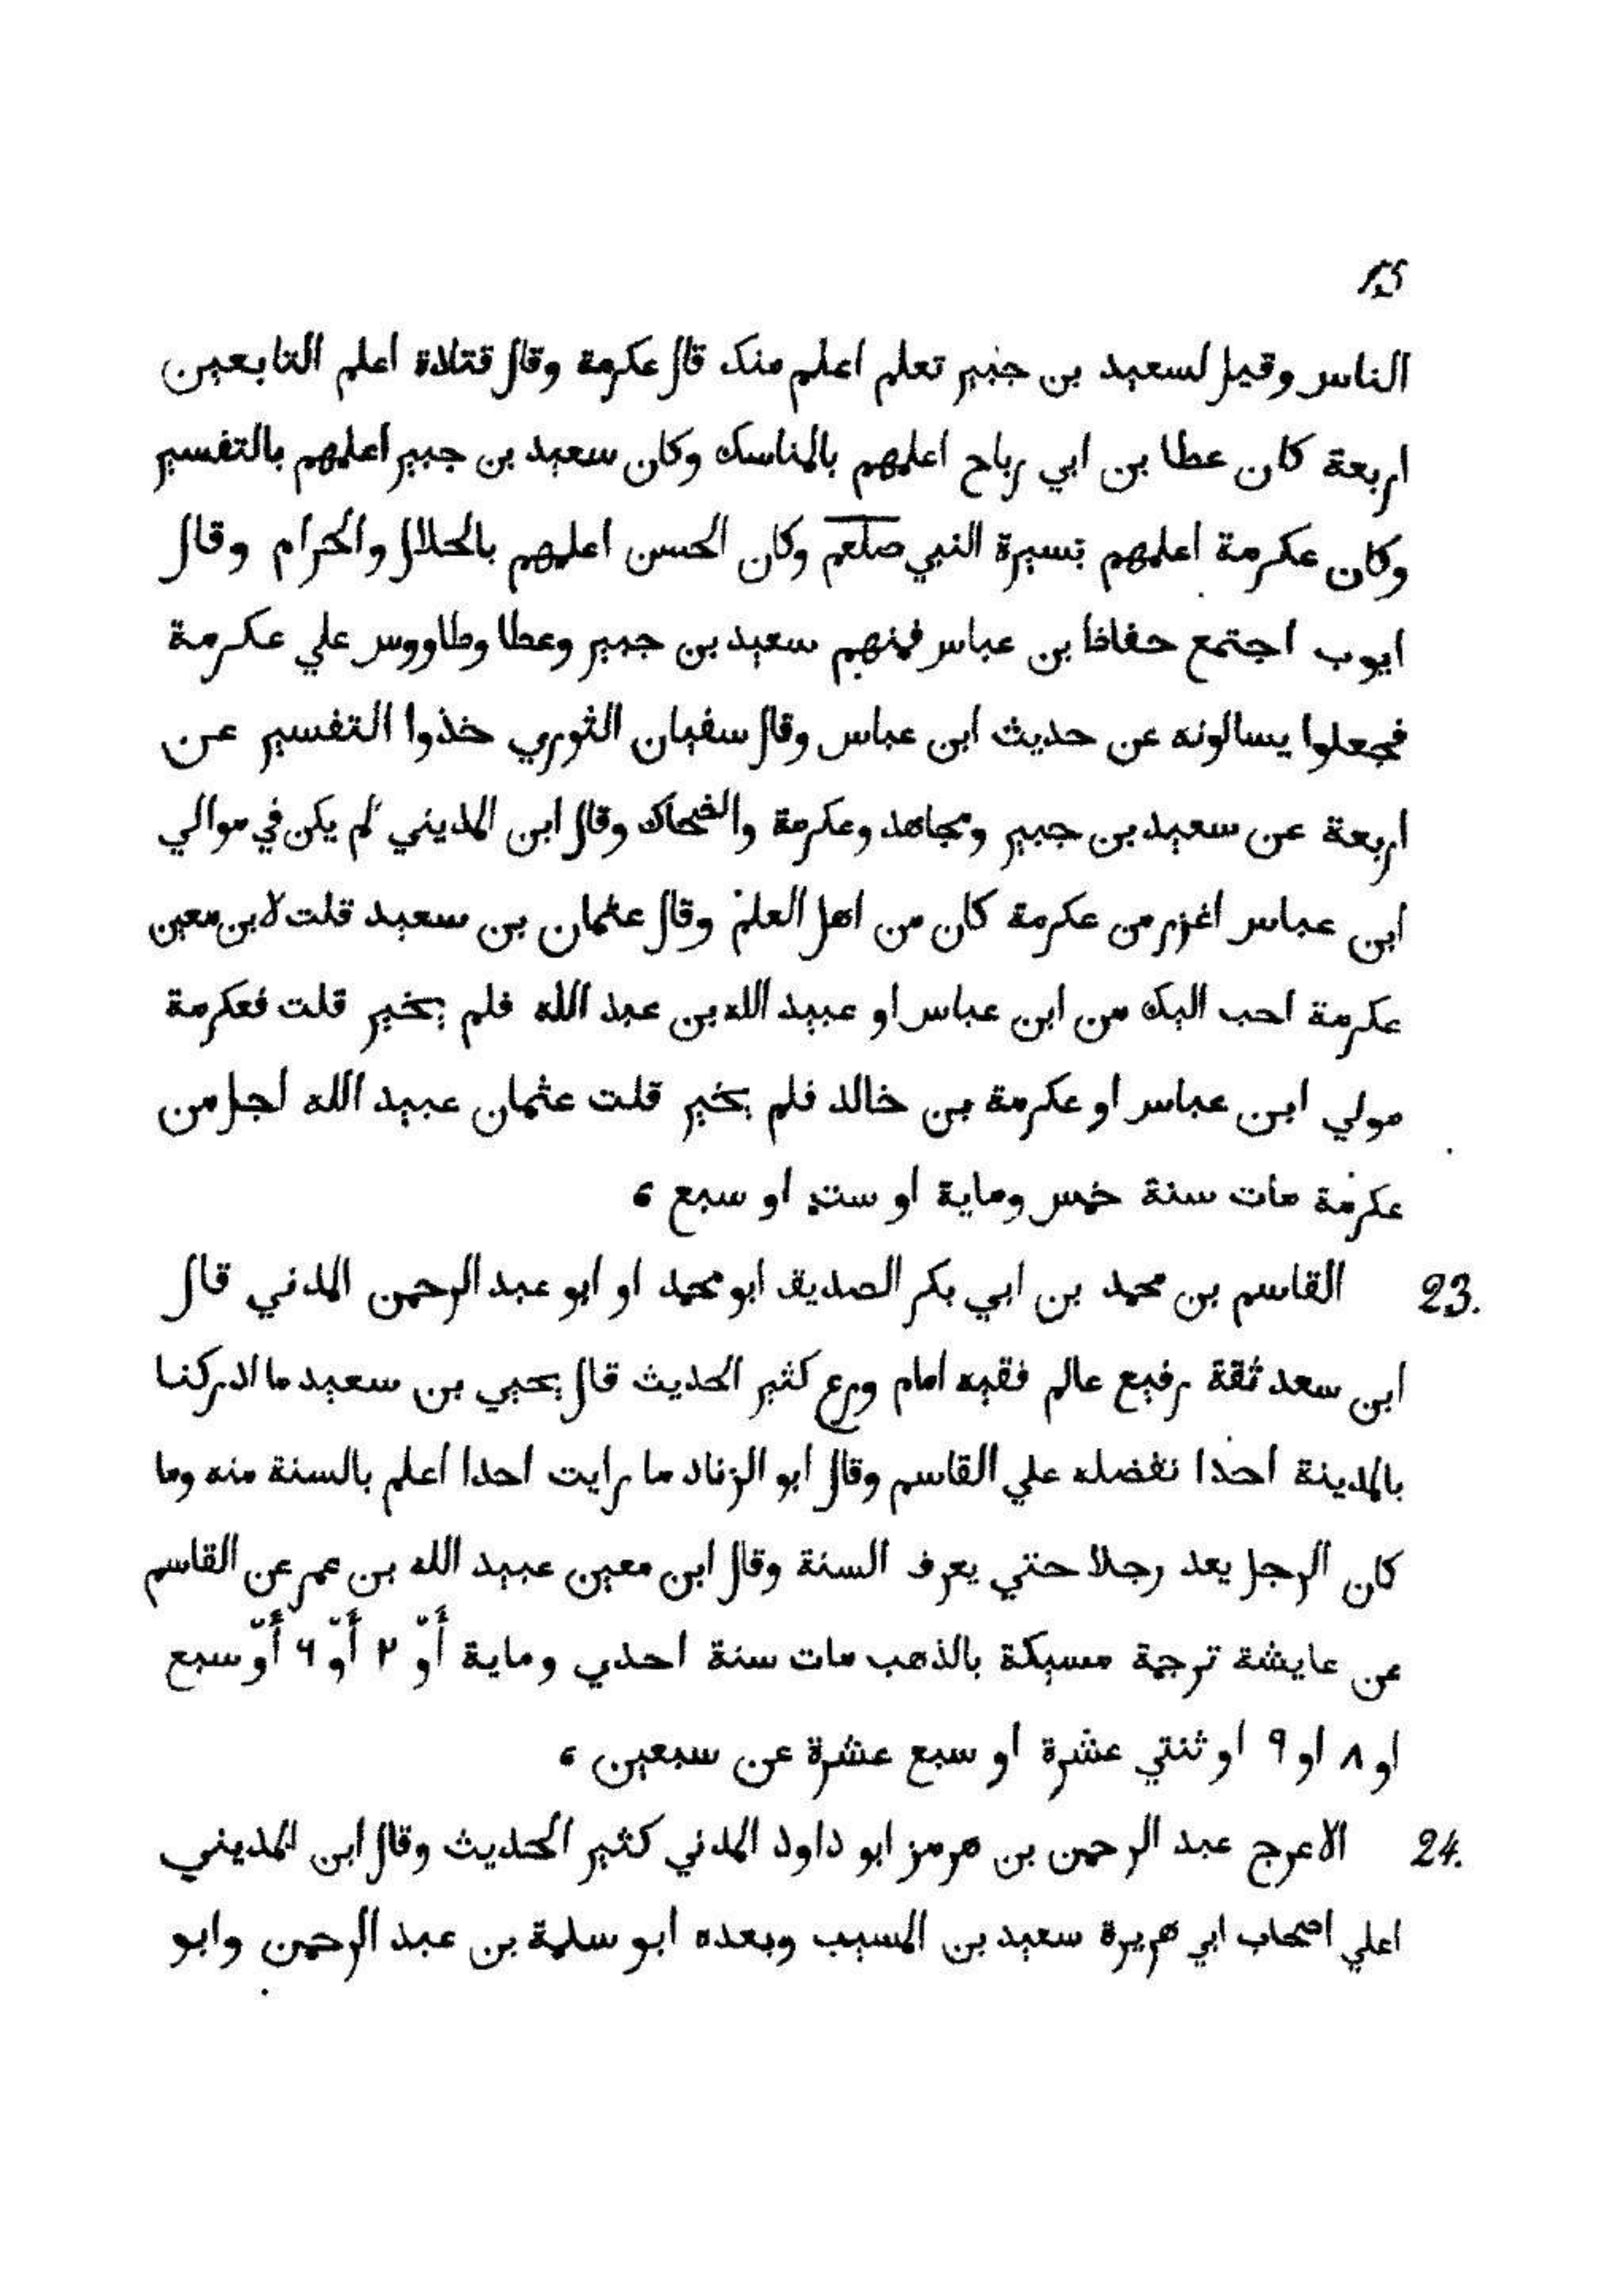 15
الناس وقيل لسعيد بن جبير تعلم اعلم منك قال عكرمة وقال قتادة اعلم التابعين
اربعة كان عطا بن ابي رباح اعلمهم بالمناسك وكان سعيد بن جبير اعلمهم بالتفسير
وكان عكرمة اعلمهم بسيرة النبي صلعم وكان الحسن اعلمهم بالحلال والحرام وقال
ايوب اجتمع حفاظ بن عباس فمنهم سعيد بن جبير وعطا وطاووس علي عكرمة
فجعلوا يسالونه عن حديث ابن عباس وقال سفيان الثوري خذوا التفسير عن
اربعة عن سعيد بن جبير ومجاهد وعكرمة والضحاك وقال ابن المديني لم يكن في موالي
ابن عباس اغزر من عكرمة كان من اهل العلم وقال عثمان بن سعيد قلت لابن معين
عكرمة احب اليك من ابن عباس او عبيد الله بن عبد الله فلم يخير قلت فعكرمة
مولي ابن عباس او عكرمة بن خالد فلم يخير قلت عثمان عبيد الله اجل من
عكرمة مات سنة خمس وماية او ست او سبع ،
23. القاسم بن محمد بن ابي بكر الصديق ابو محمد او ابو عبد الرحمن المدني قال
ابن سعد ثقة رفيع عالم فقيه امام ورع كثير الحديث قال يحيي بن سعيد ما ادركنا
بالمدينة احدا نفضله علي القاسم وقال ابو الزناد ما رايت احدا اعلم بالسنة منه وما
كان الرجل يعد رجلا حتي يعرف السنة وقال ابن معين عبيد الله بن عمر عن القاسم
عن عايشة ترجمة مسبكة بالذهب مات سنة احدي وماية أوّ ٢ أوّ ٦ أوّ سبع
او ٨ او ٩ او ثنتي عشرة او سبع عشرة عن سبعين ،
24. الاعرج عبد الرحمن بن هرمز ابو داود المدني كثير الحديث وقال ابن المديني
اعلي اصحاب ابي هريرة سعيد بن المسيب وبعده ابو سلمة بن عبد الرحمن وابو